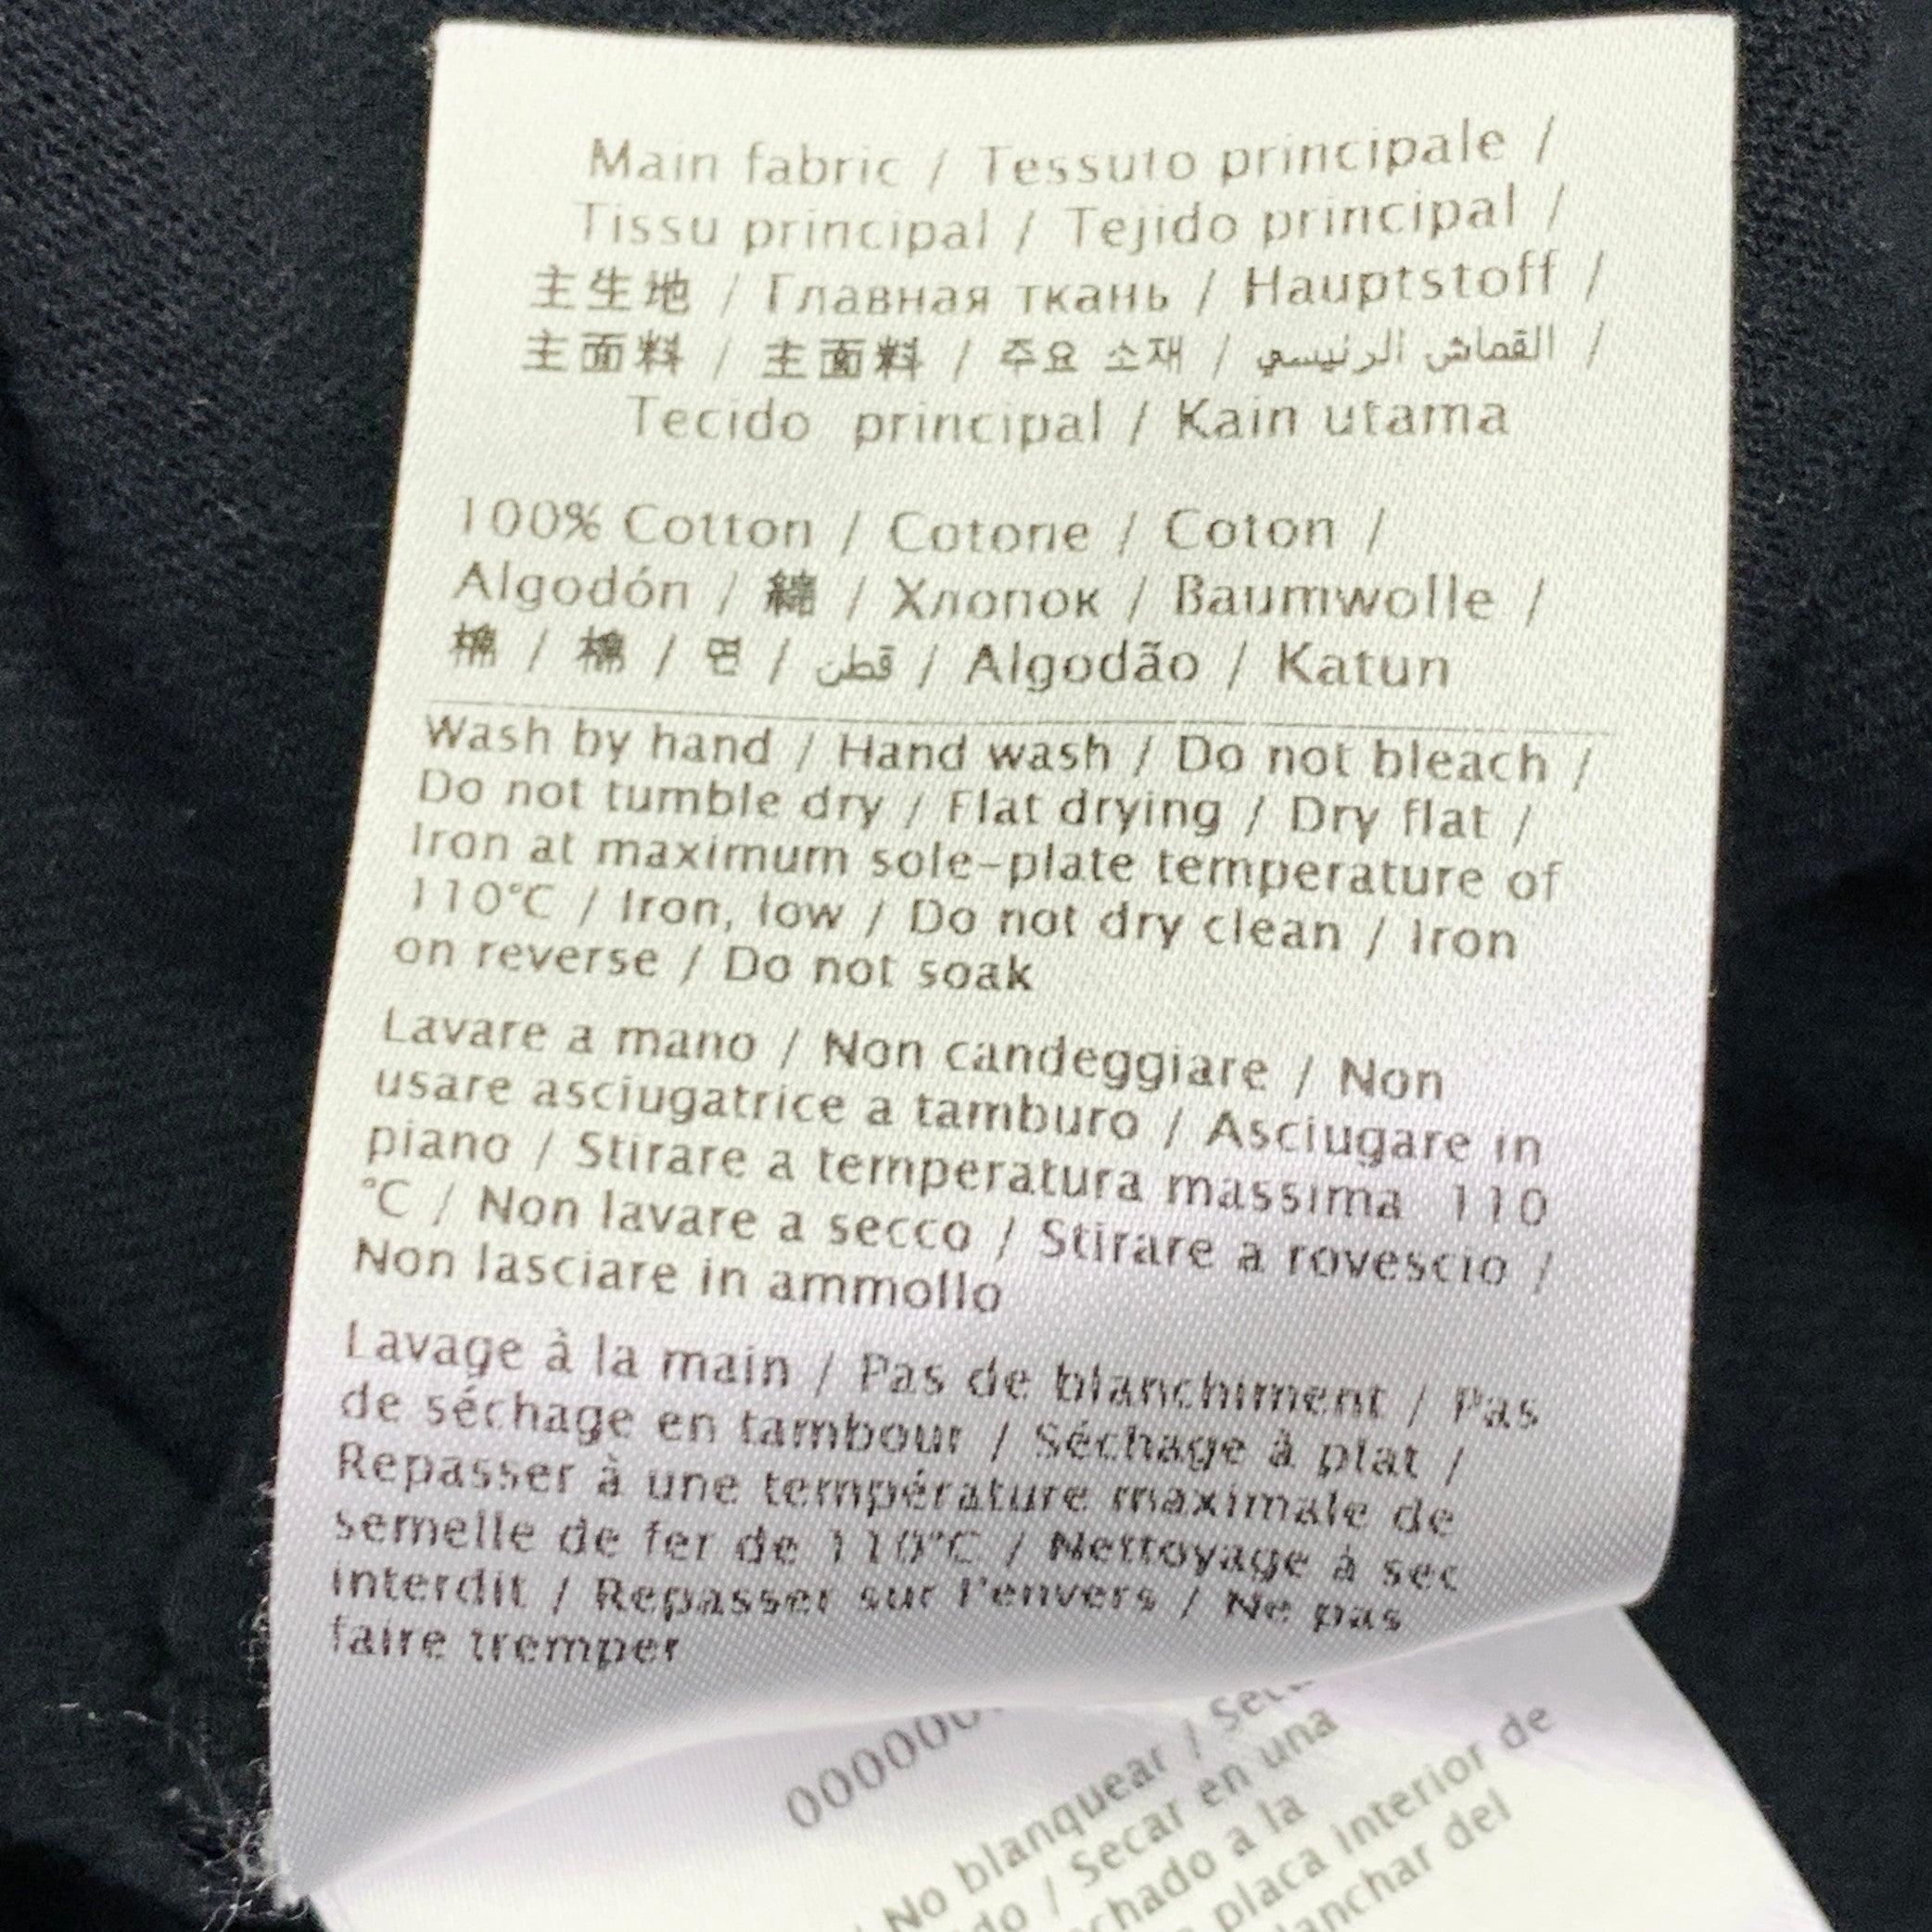 Main fabric / Tessuto principale /
Tissu principal / Tejido principal /
主生地 / Главная ткань / Hauptstoff /
主面料 / 主面料 / 주요 소재 / القماش الرئيسي /
Tecido principal / Kain utama
100% Cotton / Cotone / Coton /
Algodón / 綿 / Хлопок / Baumwolle /
棉 / 棉 / 면 / قطن / Algodão / Katun
Wash by hand / Hand wash / Do not bleach /
Do not tumble dry / Flat drying / Dry flat /
Iron at maximum sole-plate temperature of
110°C / Iron, low / Do not dry clean / Iron
on reverse / Do not soak
Lavare a mano / Non candeggiare / Non
usare asciugatrice a tamburo / Asciugare in
piano / Stirare a temperatura massima 110
°C / Non lavare a secco / Stirare a rovescio /
Non lasciare in ammollo
Lavage à la main / Pas de blanchiment / Pas
de séchage en tambour / Séchage à plat /
Repasser à une température maximale de
semelle de fer de 110°C / Nettoyage à sec
interdit / Repasser sur l'envers / Ne pas
faire tremper
000000
/ No blanquear /
/ Secar en una
a la
placa interior de
del